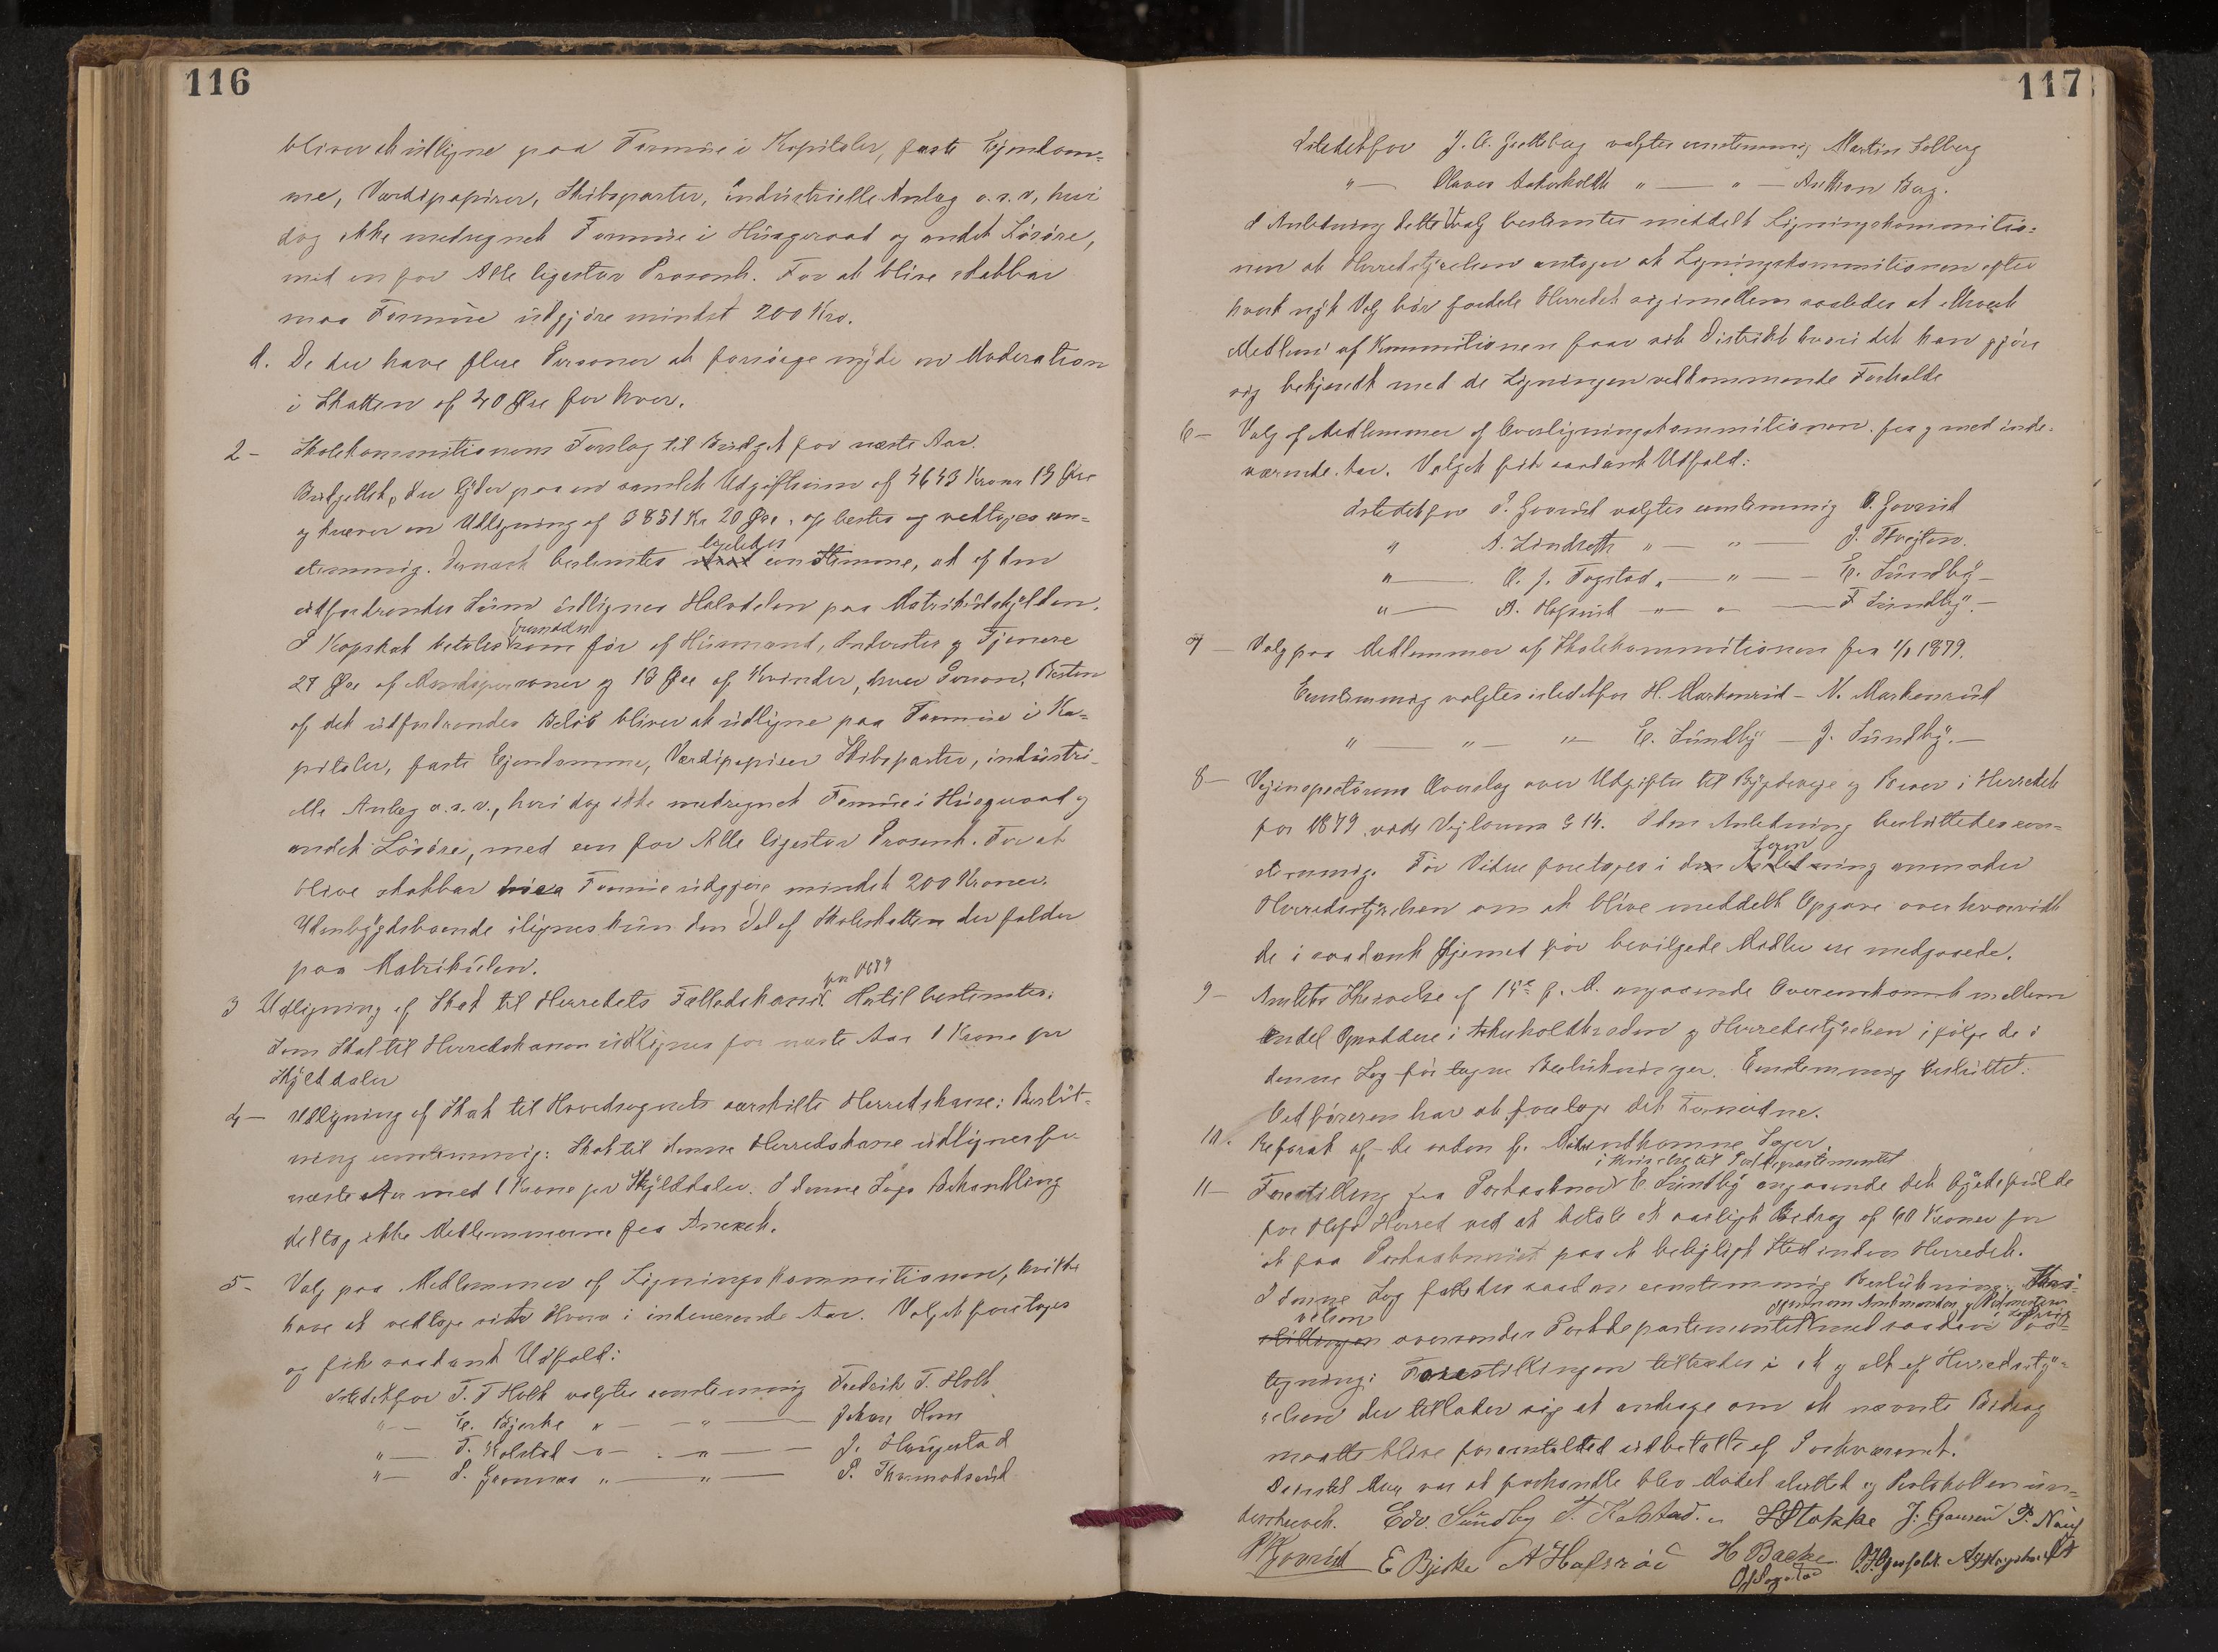 116
bliver at udligne paa Formue i Kapitaler, faste Ejendom=
me, Værdipapirer, Skibsparter, industrielle Anlæg o. s. v, hvri
dog ikke medregnet Formue i Husgeraad og andet Løsøre,
med en for Alle ligestor Prosent. For at blive skatbar
maa Formue udgjøre mindst 200 Kro.
d. De der have flere Personer at forsørge nyde en Moderation
i Skatten af 40 Øre for hver.
2 - Skolekommitionens Forslag til Budget for næste Aar.
Budgettet, der lyder paa en samlet Udgiftssum af 4643 Kroner 19 Øre
og kræver en Udligning af 3851 Kr 20 Øre, oplæstes og vedtoges een=
ligeledes
stemmig. Dernæst bestemtes eenstemme, at af den
udfordrendes Sum udlignes Halvdelen paa Matrikulskylden.
I Kopskat betales som før af Husmænd, Inderster og Tjenere
24 Øre af Mandspersoner og 13 Øre af Kvinder, hver Person. Resten
af det udfordrendes Beløb bliver at udligne paa Formue i Ka=
pitaler, faste Ejendomme, Værdipapirer Skibsparter, industri=
elle Anlæg o. s. v., hvri dog ikke medregnet Formue i Husgeraad og
andet Løsøre, med een for Alle ligestor Prosent. For at
blive skatbar Formue udgjøre mindst 200 Kroner.
Udenbygdsboende ilignes kun den Del af Skoleskatten der falder
paa Matrikulen.
for 1879
3 Udligning af Skat til Herredets Fællodskasse. Hertil bestemtes:
Som Skat til Herredskassen udlignes for næste Aar 1 Krone pr
Skylddaler
4 - Udligning af Skat til Hovedsognets særskilte Herredskasse: Beslut=
ning eenstemmig: Skat til denne Herredskasse udlignes for
næste Aar med 1 Krone pr Skylddaler. I denne Sags Behandling
deltog ikke Medlemmerne fra Annexet.
5 - Valg paa Medlemmer af Ligningskommitionen, hvilke
have at vedtage sit Hverv i indeværende Aar. Valget foretoges
og fik saadant Udfald:
Istedetfor T. T Holt valgtes eenstemmig Fredrik T. Holt
" — E. Bjerke " — " — Johan Horn
" — T. Kolstad " — " — J. Haugestad
" — S. Grønnes " — " — P. Thormodsrud
117
Istedetfor J. A. Gretteberg valgtes eenstemmig Martin Solberg
" — Olaves Askerholdt " — " — Anthon Berg.
I Anledning dette Valg bestemtes meddelt Ligningskommitio=
nen at Herredstyrelsen antager at Ligningskommitionen efter
hvert nyt Valg bør fordele Herredet sig imellem saaledes at ethvert
Medlem af Kommitionen faar sit Distrikt hvori det kan gjøre
sig bekjendt med de Ligningen vedkommende Forholde
6 - Valg af Medlemmer af Overligningskommitionen fra og med inde=
værende Aar. Valget fik saadant Udfald:
Istedetfor P. Govrud valgtes eenstemmig A. Govrud
" A. Lindseth " — " — J. Tvejten.
" — O. J. Fagstad " — " — E. Sundby —
" — A. Hafsrud — " — " — F Sundby. —
7 — Valg paa Medlemmer af Skolekommitionen fra 1/1 1879.
Eenstemmig valgtes istedetfor H. Markerud — N. Markerud
" — " — " — E. Sundby — J. Sundby. —
8 — Vejinspectørens Overslag over Udgifter til Bygdeveje og Broer i Herredet
for 1879 vide Vejlovens § 14. I den Anledning besluttedes een=
Sagen
stemmig. Før Videre foretages i anmoder
Herredsstyrelsen om at blive meddelt Opgave over hvorvidt
de i saadant Øjemed før bevilgede Midler ere medgaaede.
9 — Amtets Skrivelse af 15de f. M. angaaende Overenskomst mellem
Endel Opsiddere i Askerholdtkredsen og Herredsstyrelsen ifølge de i
denne Sag før tagne Beslutninger. Eenstemmig besluttet:
Ordføreren har at foretage det Fornødne.
10. Referat af de siden f. Møde indkomne Sager.
i Skrivelse til Postdepartementet
11 — Forestilling fra Postaabner E. Sundby angaaende det byrdefulde
for Herred ved at betale et aarligt Bidrag af 60 Kroner for
at faa Postaabneriet paa et belejligt Sted inden Herredet.
I denne Sag fattedes saadan eenstemmig Beslutning: Skri=
gjennem Amtmanden og Postmesteren
velsen oversendes Postdepartementet med saadan
tegning: Forestillingen tiltrædes i et og alt af Herredssty=
relsen der tillader sig at andrage om at nævnte Bidrag
maatte blive foranstaltet udbetalt af Postvæsenet.
Da intet Mere var at forhandle blev Mødet sluttet og Protokollen un=
derskrevet. Edv. Sundby T. Kolstad. J. Gausen
Govrud E Bjerke A Hafsrød H Backe